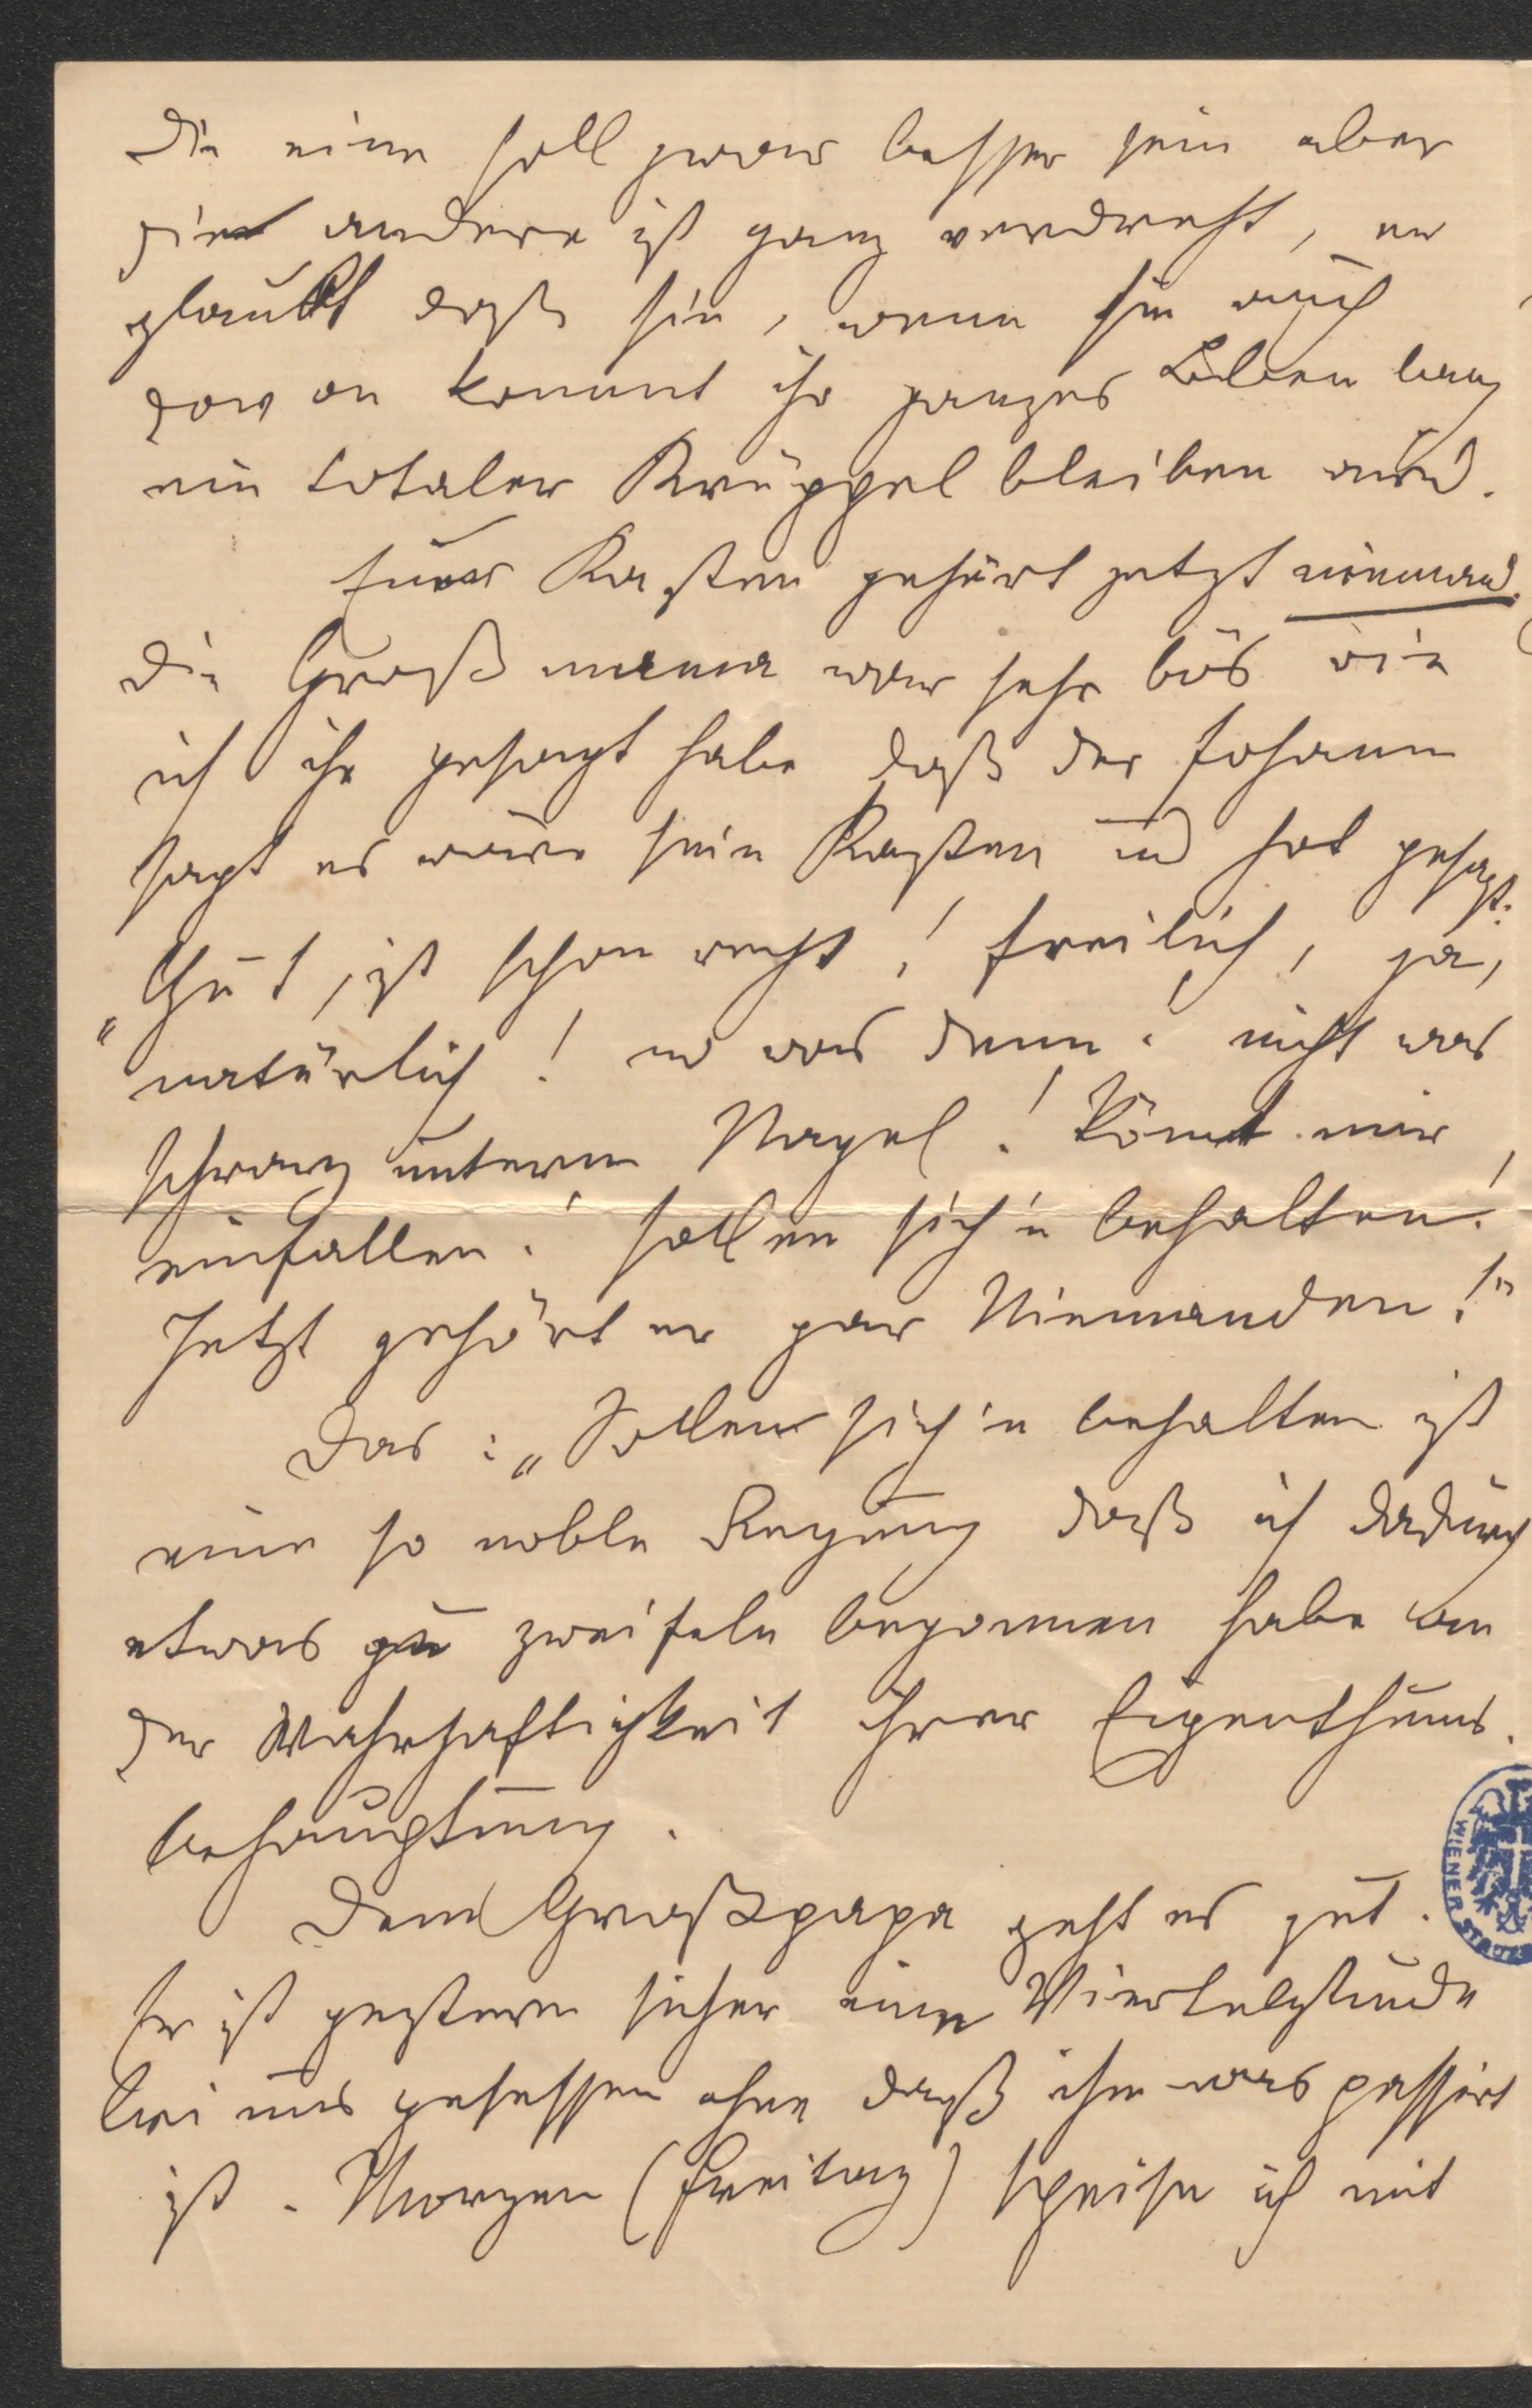 Die eine soll zwar besser sein aber
die andere ist ganz verdreht, er
glaubt daß sie, wenn sie auch
davon kommt ihr ganzes Leben lang
ein totaler Krüppel bleiben wird.
Euer Kasten gehört jetzt niemand.
Die Großmama war sehr bös wie
ich ihr gesagt habe daß der Johann
sagt es wäre sein Kasten und hat gesagt:
„Gut, ist schon recht! freilich, ja,
natürlich! no was denn! nicht was
schwarz unterm Nagel! Könnt mir
einfallen! sollen sich'n behalten!
Jetzt gehört er gar Niemanden!"
Das: „Sollen sich'n behalten ist
eine so noble Regung daß ich dadurch
etwas zu zweifeln begonnen habe an
der Wahrhaftigkeit ihrer Eigenthums-
behauptung.
Dem Großpapa geht es gut.
Er ist gestern sicher eine Viertelstunde
bei uns gesessen ohne daß ihm was passirt
ist. Morgen (Freitag) speise ich mit
WIENER STADT